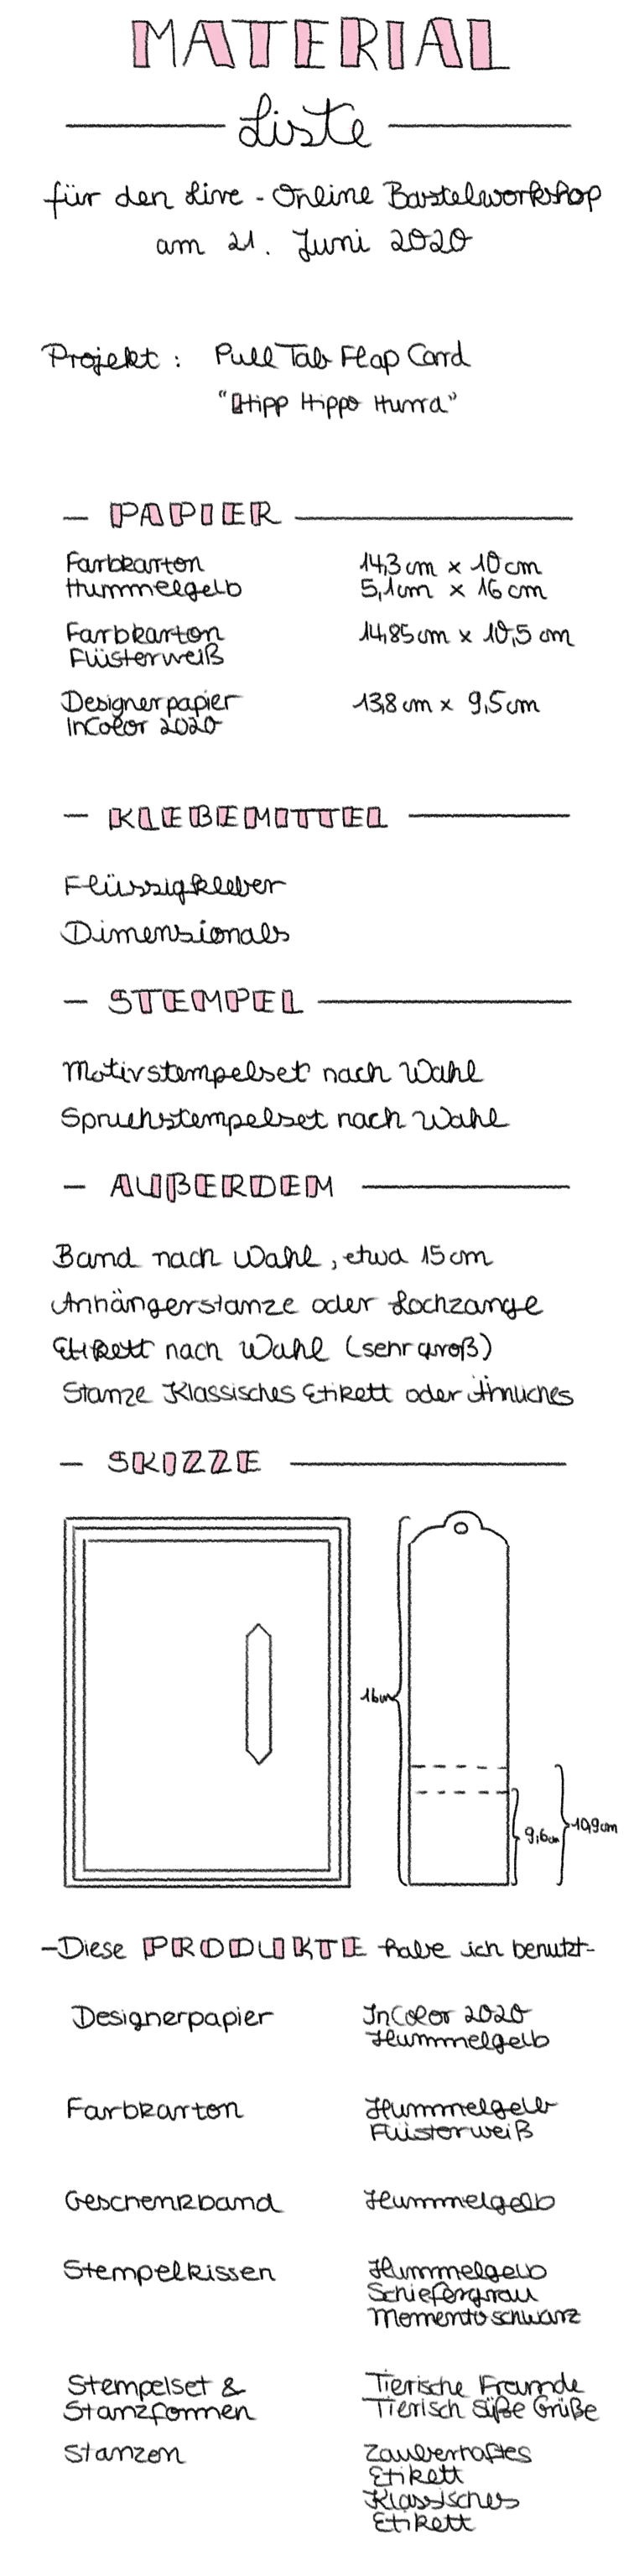 MATERIAL
Liste
für den Live - Online Bastelworkshop
am 21. Juni 2020
Projekt : Pull Tab Flap Card
"Hipp Hippo Hurra"
- PAPIER
Farbkarton 14,3 cm x 10 cm
Hummelgelb 5,1cm x 16 cm
Farbkarton 14,85 cm x 10,5 cm
Flüsterweiß
Designerpapier 13,8 cm x 9,5 cm
InColor 2020
- KLEBEMITTEL
Flüssigkleber
Dimensionals
- STEMPEL
Motivstempelset nach Wahl
Spruchstempelset nach Wahl
- AUßERDEM
Band nach Wahl, etwa 15 cm
Anhängerstanze oder Lochzange
Etikett nach Wahl (sehr groß)
Stanze Klassisches Etikett oder Ähnliches
- SKIZZE
16cm
9,6cm
10,9cm
-Diese PRODUKTE habe ich benutzt-
Designerpapier InColor 2020
Hummelgelb
Farbkarton Hummelgelb
Flüsterweiß
Geschenkband Hummelgelb
Stempelkissen Hummelgelb
Schiefergrau
Memento schwarz
Stempelset & Tierische Freunde
Stanzformen Tierisch süße Grüße
Stanzen Zauberhaftes
Etikett
Klassisches
Etikett